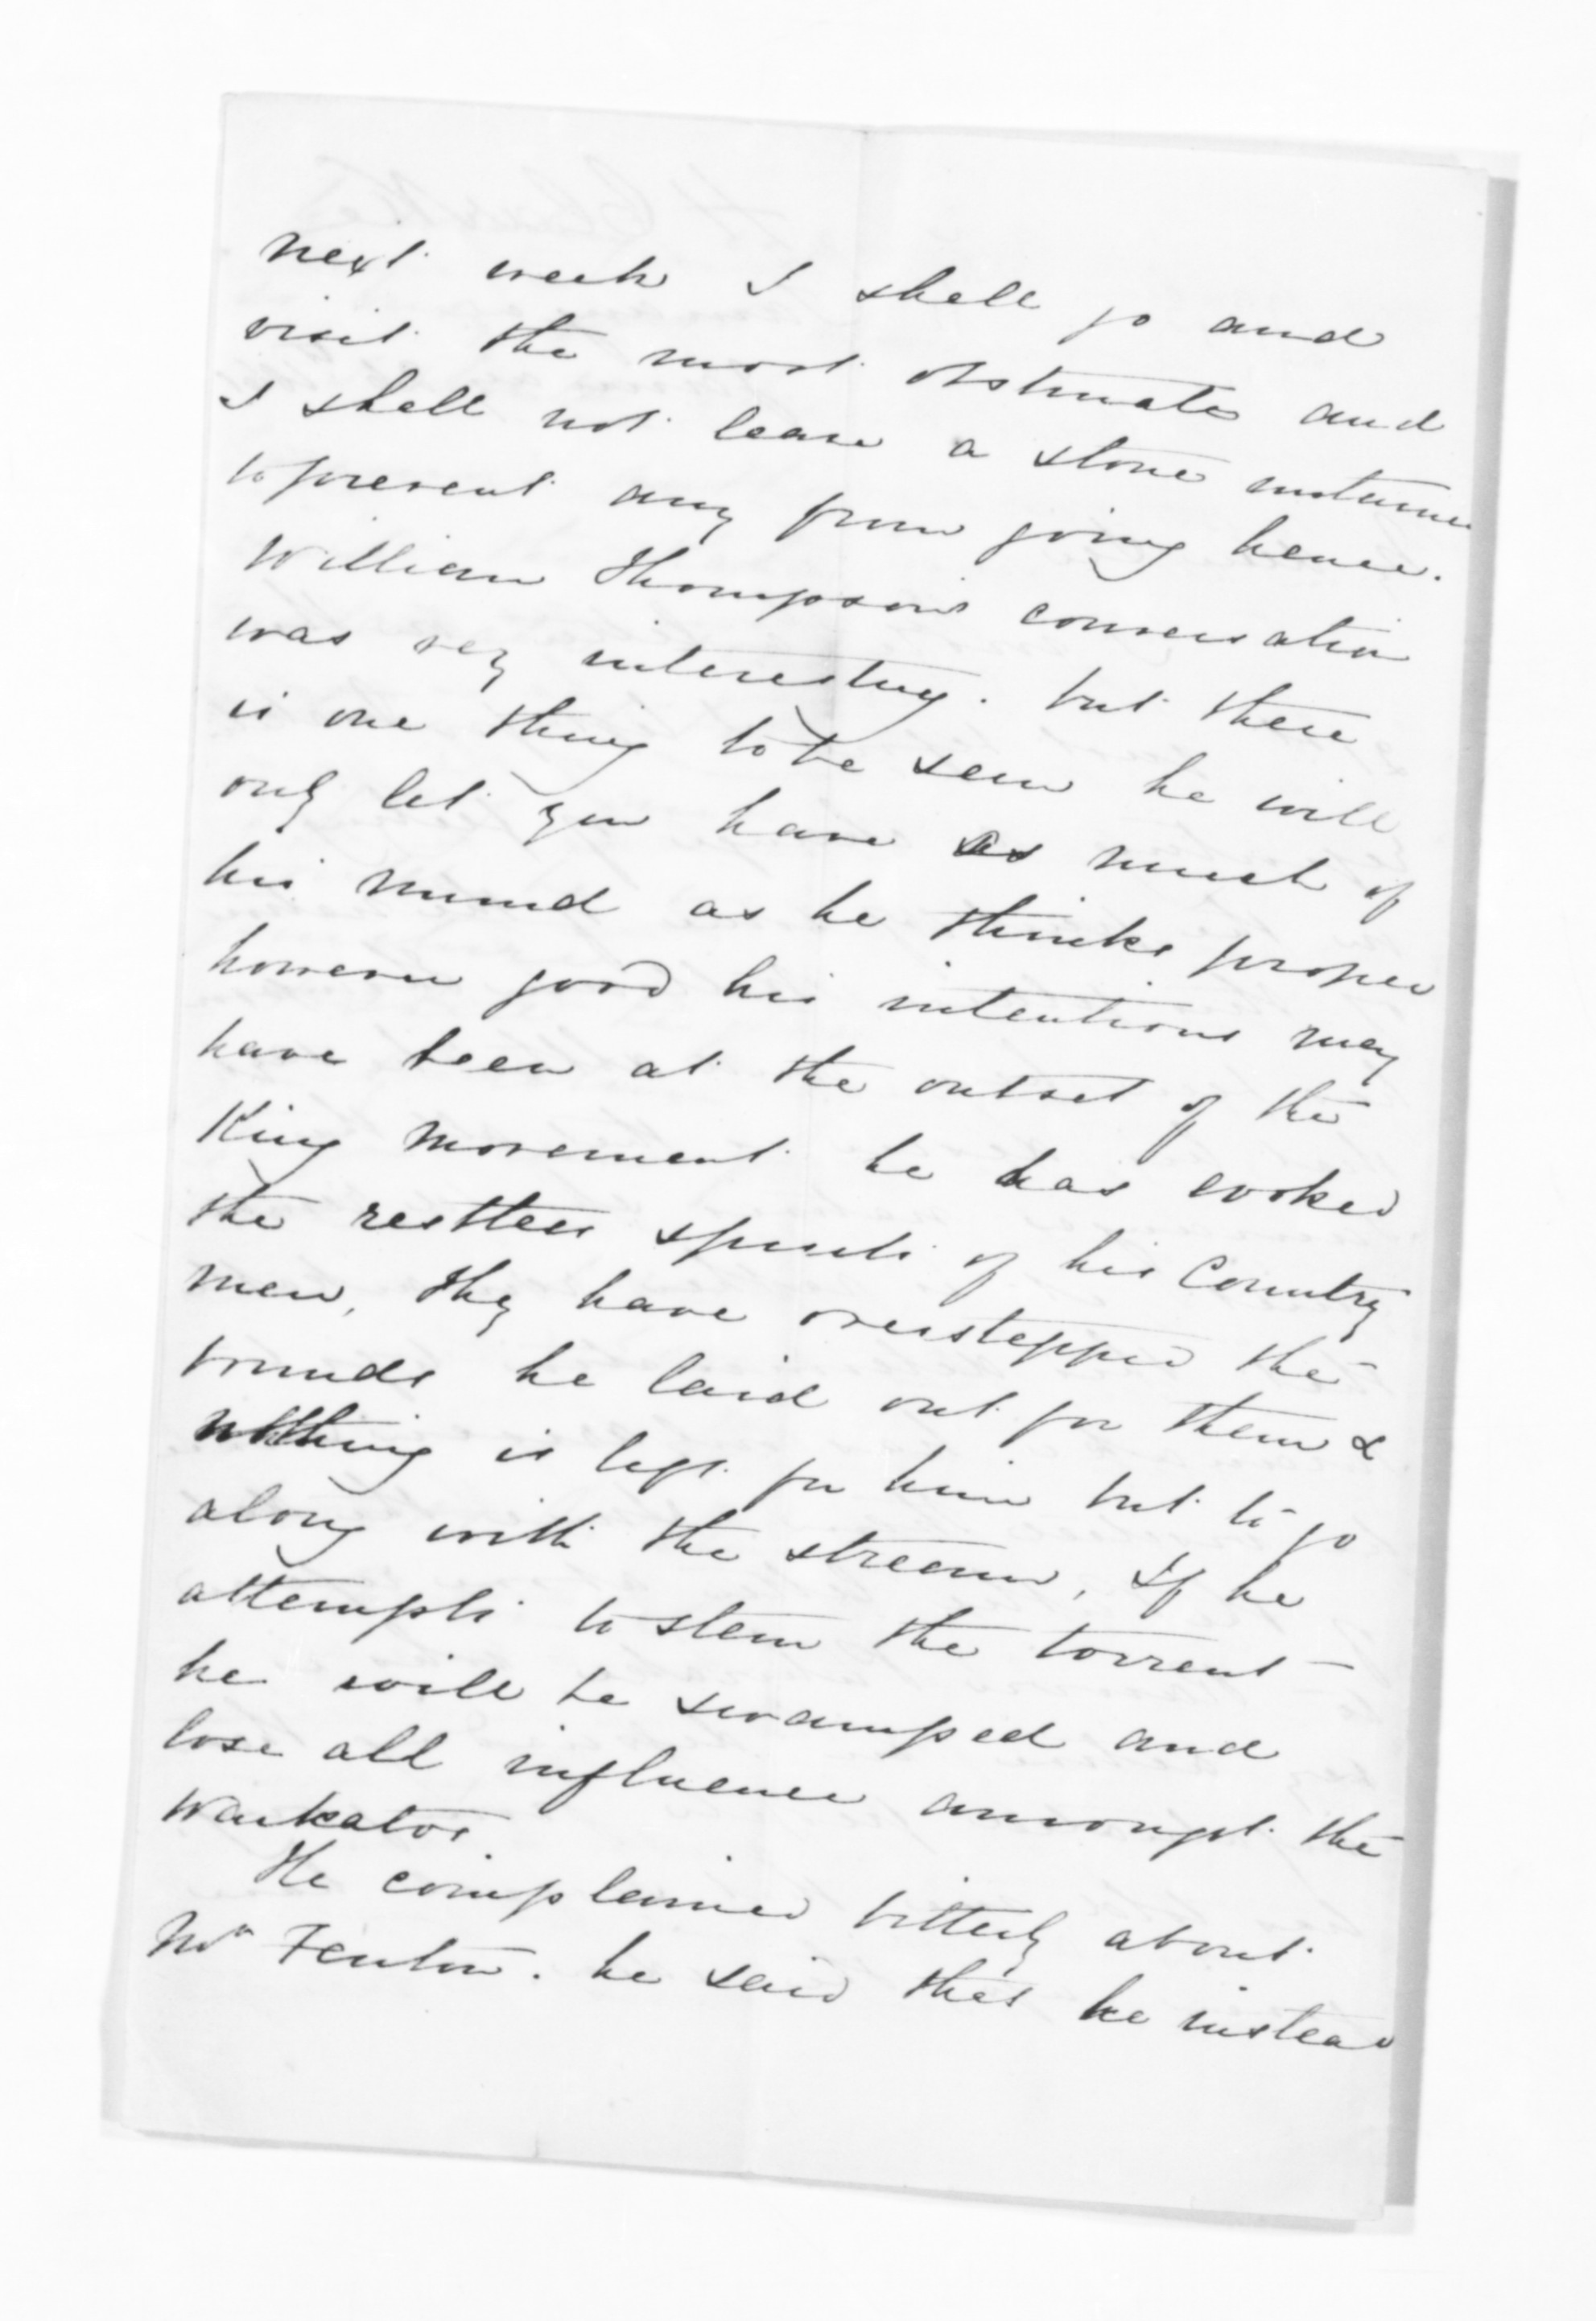 next week I shall go and
visit the most obstinate and
I shall not leave a stone unturned
to prevent any from going hence.
William Thompson's conversation
was very interesting. but there
is one thing to be seen he will
only let you have as much of
his mind as he thinks proper
however good his intentions may
have been at the outset of the
King movement he has evoked
the restless spirits of his Country
men, they have overstepped the
bounds he laid out for them &
nothing is left for him but to go
along with the stream, If he
attempts to stem the torrent
he will be swamped and
lose all influence amongst the
Waikatos
He complained bitterly about
Mr Fenton. he said that he instead